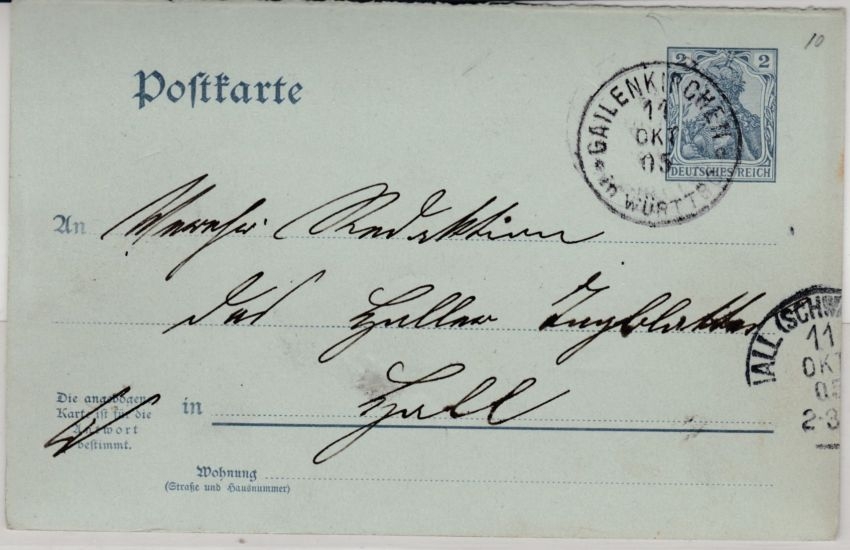 10
Postkarte
2 2
DEUTSCHES REICH
GAILENKIRCHEN
11
OKT
05
in WÜRTTB
An Redaktion
des Haller Tagblattes
HALL (SCHW
11
OKT
05
2-3
in Hall
Die angebogene
Karte ist für die
Antwort
bestimmt.
Wohnung
(Straße und Hausnummer)